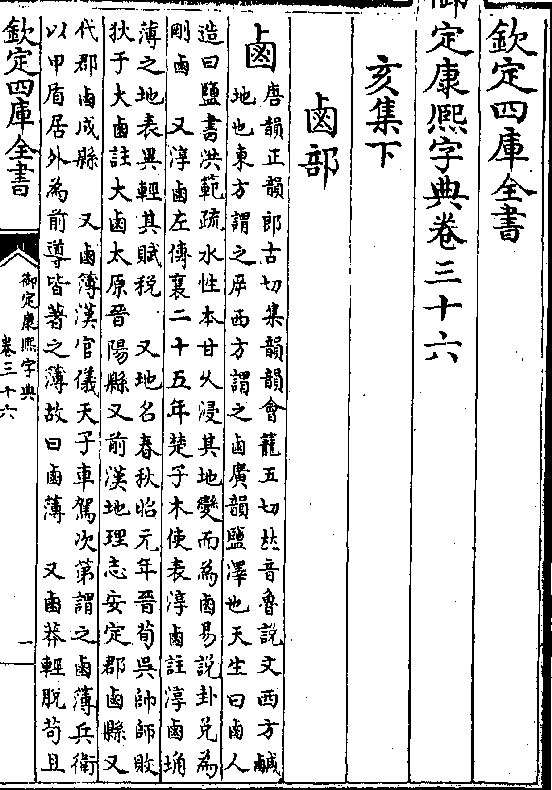 欽定四庫全書
御定康熙字典卷三十六
亥集下
鹵部
鹵
唐韻正韻郎古切集韻韻會籠五切𠀤音魯說文西方鹹
地也東方謂之㡿西方謂之鹵廣韻鹽澤也天生曰鹵人
造曰鹽書洪範疏水性本甘乆浸其地變而為鹵易說卦兌為
剛鹵　又淳鹵左傳襄二十五年楚子木使表淳鹵註淳鹵埆
薄之地表異輕其賦稅　又地名春秋昭元年晉荀吳帥師敗
狄于大鹵註大鹵太原晉陽縣又前漢地理志安定郡鹵縣又
代郡鹵成縣　又鹵簿漢官儀天子車駕次第謂之鹵簿兵衛
以甲盾居外為前導皆著之簿故曰鹵簿　又鹵莽輕脫苟且
欽定四庫全書
御定康熙字典
卷三十六
一